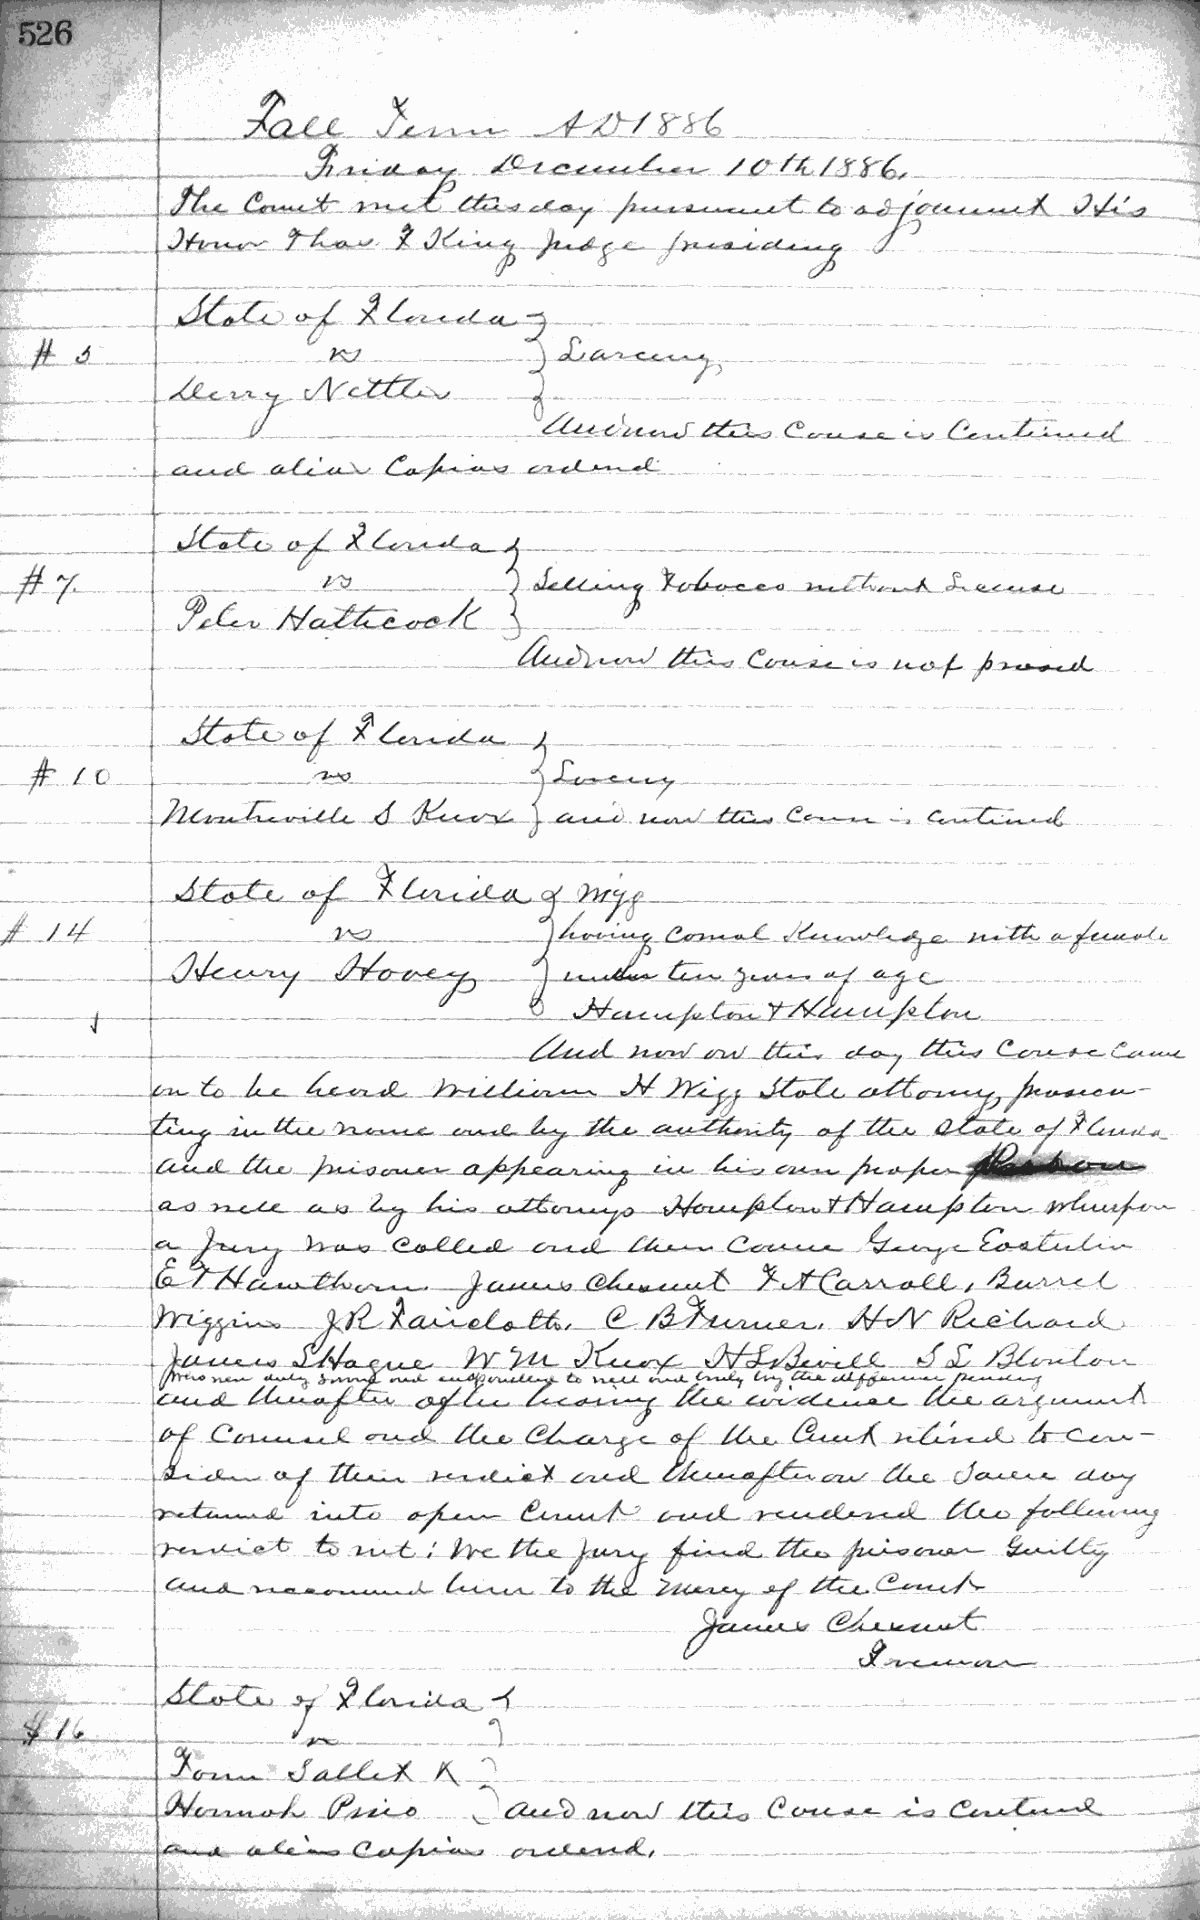 526
Fall Term AD 1886
Friday December 10th 1886.
The Court met this day pursuant to adjournment His
Honor Thos F King Judge presiding
State of Florida
# 5 vs Larceny
Derry Nettles
And now this Cause is Continued
and alias Capias ordered
State of Florida
# 7. vs Selling Tobacco without License
Peter Hatticock
And now this Cause is nol prosed
State of Florida
# 10 vs Larceny
Montreville S Knox and now this Cause is Continued
State of Florida Wigg
# 14 vs having Carnal Knowledge with a female
Henry Hovey under ten years of age
Hampton & Hampton
And now on this day this Cause Came
on to be heard William H Wigg State attorney prosecu-
ting in the name and by the authority of the State of Florida
and the prisoner appearing in his own proper person
as well as by his attorneys Hampton & Hampton whereupon
a Jury was called and then Came George Easterlin
E T Hawthorn James Chesnut F A Carroll, Barrel
Wiggins J R Faircloth, C B Turner, H N Richard
James S Hague W M Knox H L Bevill S L Blanton
who were duly sworn and to well and truly try the difference pending
and thereafter after hearing the evidence the argument
of Counsel and the Charge of the Court retired to con-
sider of their verdict and thereafter on the Same day
returned into open Court and rendered the following
verdict to wit: We the Jury find the prisoner Guilty
and recommend him to the mercy of the Court
James Chesnut
Foreman
State of Florida
# 16 vs
Tom Sallet &
Hannah Prio and now this Cause is Continued
and alias Capias ordered.